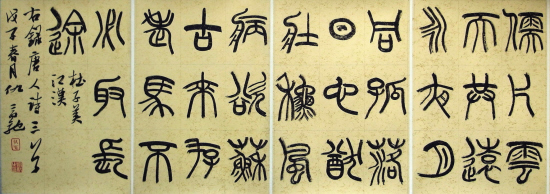 儒片雲
天共遠
永夜月
同孤落
日心猶
壯秋風
病欲蘇
古來存
老馬不
必取長
途
杜子美
江漢
右錄唐人詩
春月